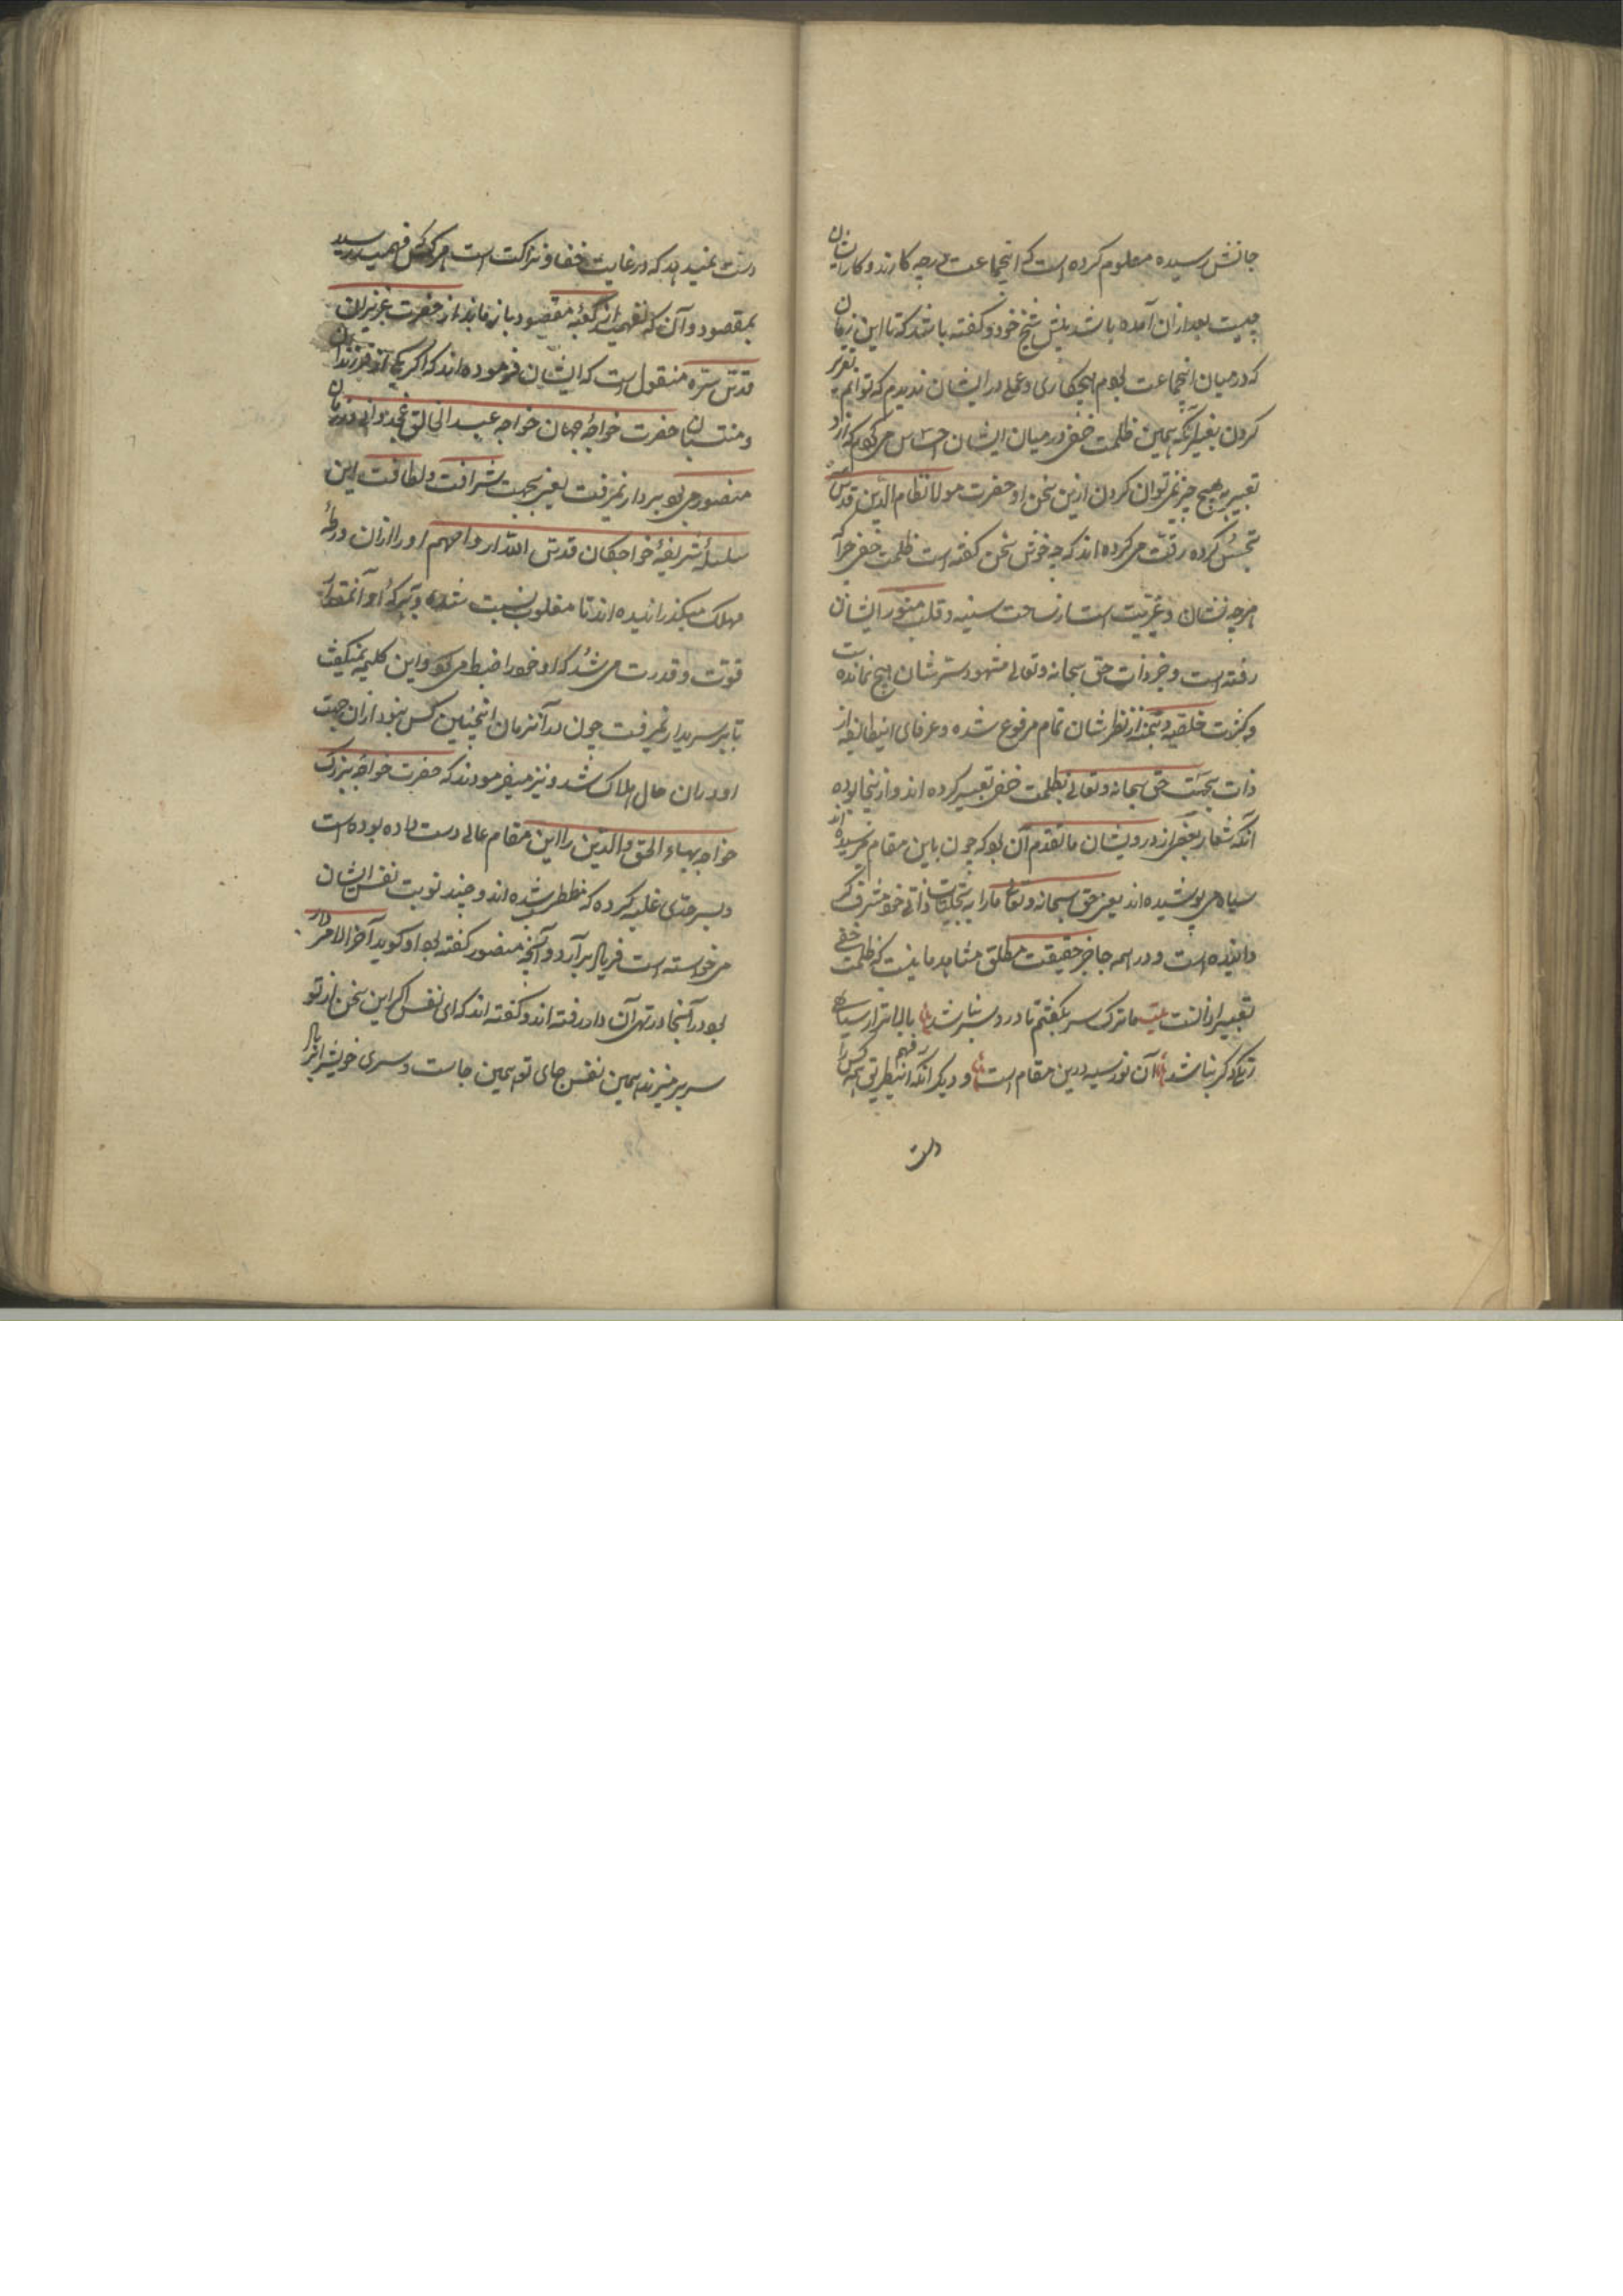 جانش رسیده معلوم کرده است که اینجماعت درچه کارند و کار ایشان
چیست بعد ازان آمده باشد پیش شیخ خود و گفته باشد که تا این زمان
که درمیان اینجماعت بودم هیچکاری و عملی در ایشان ندیدم که توانم به تقریر
کردن بغیر آنکه همین ظلمت خفی درمیان ایشان احساس می کردم که ازاو
تعبیر به هیچ چیز نمی توان کردن ازین سخن او حضرت مولانا نظام الدین قدس سره
تحسین کرده رقت می کرده اند که چه خوش سخن گفته است ظلمت خفی چرا که
هرچه نشان و غیریت است از ساحت سینه و قلب منور ایشان
رفته است و جز ذات حق سبحانه و تعالی مشهود سرشان هیچ نمانده است
و کثرت خلقیه از نظرشان تمام مرفوع شده و عرفای اینطایفه از
ذات بحت حق سبحانه و تعالی بظلمت خفی تعبیر کرده اند و ازینجا بوده
آنکه شعار بعضی از درویشان ما تقدم آن بود که چون باین مقام می رسیده اند
سیاه می پوشیده اند یعنی حق سبحانه و تعالی مارا به تجلیات ذاتی خود مشرف کر
دانیده است و در همه جا جز حقیقت مطلق مشاهد ما نیست که ظلمت خفی
تعبیر ازانست بیت ما ترک سر بگفتیم تا درد سر نباشد بالاتر از سیاهی
رنگ دگر نباشد آن نور سیه درین مقام است و دیگر آنکه اینطریق همه کس را فهم
دست
دست نمیدهد که در غایت خفا و نزاکت است هرکس که فهمید رسید
بمقصود و آن که نفهمید از کعبه مقصود باز ماند از حضرت عزیزان
قدس سره منقول است که ایشان فرموده اند که اگر یکی از فرزندان
و منتسبان حضرت خواجه جهان خواجه عبد الخالق غجدوانی در زمان
منصور می بود بر دار نمی رفت یعنی بجهت شرافت و لطافت این
سلسله شریفه خواجکان قدس الله ارواحهم اورا ازان ورطه
مهلک میگذرانیده اند تا مغلوب نسبت نشده و آنمقدار
قوت و قدرت می شد که او خود را ضبط می کرد و این کلیمه نمیگفت
تا بر سر دار نمی رفت چون در آنزمان اینچنین کس نبود ازان جهت
او دران حال هلاک شد و نیز میفرمودند که حضرت خواجه بزرگ
خواجه بهاء الحق والدین را این مقام عالی دست داده بوده است
و بسرحدی غلبه کرده که شده اند و چند نوبت نفس ایشان
می خواسته است فریاد برآرد و آنچه منصور گفته بود او گوید آخر الامر دار
بود در آنجا در ته آن دار رفته اند و گفته اند که ای نفس اگر این سخن از تو
سر بر میزند همین نفس جای تو همین جاست